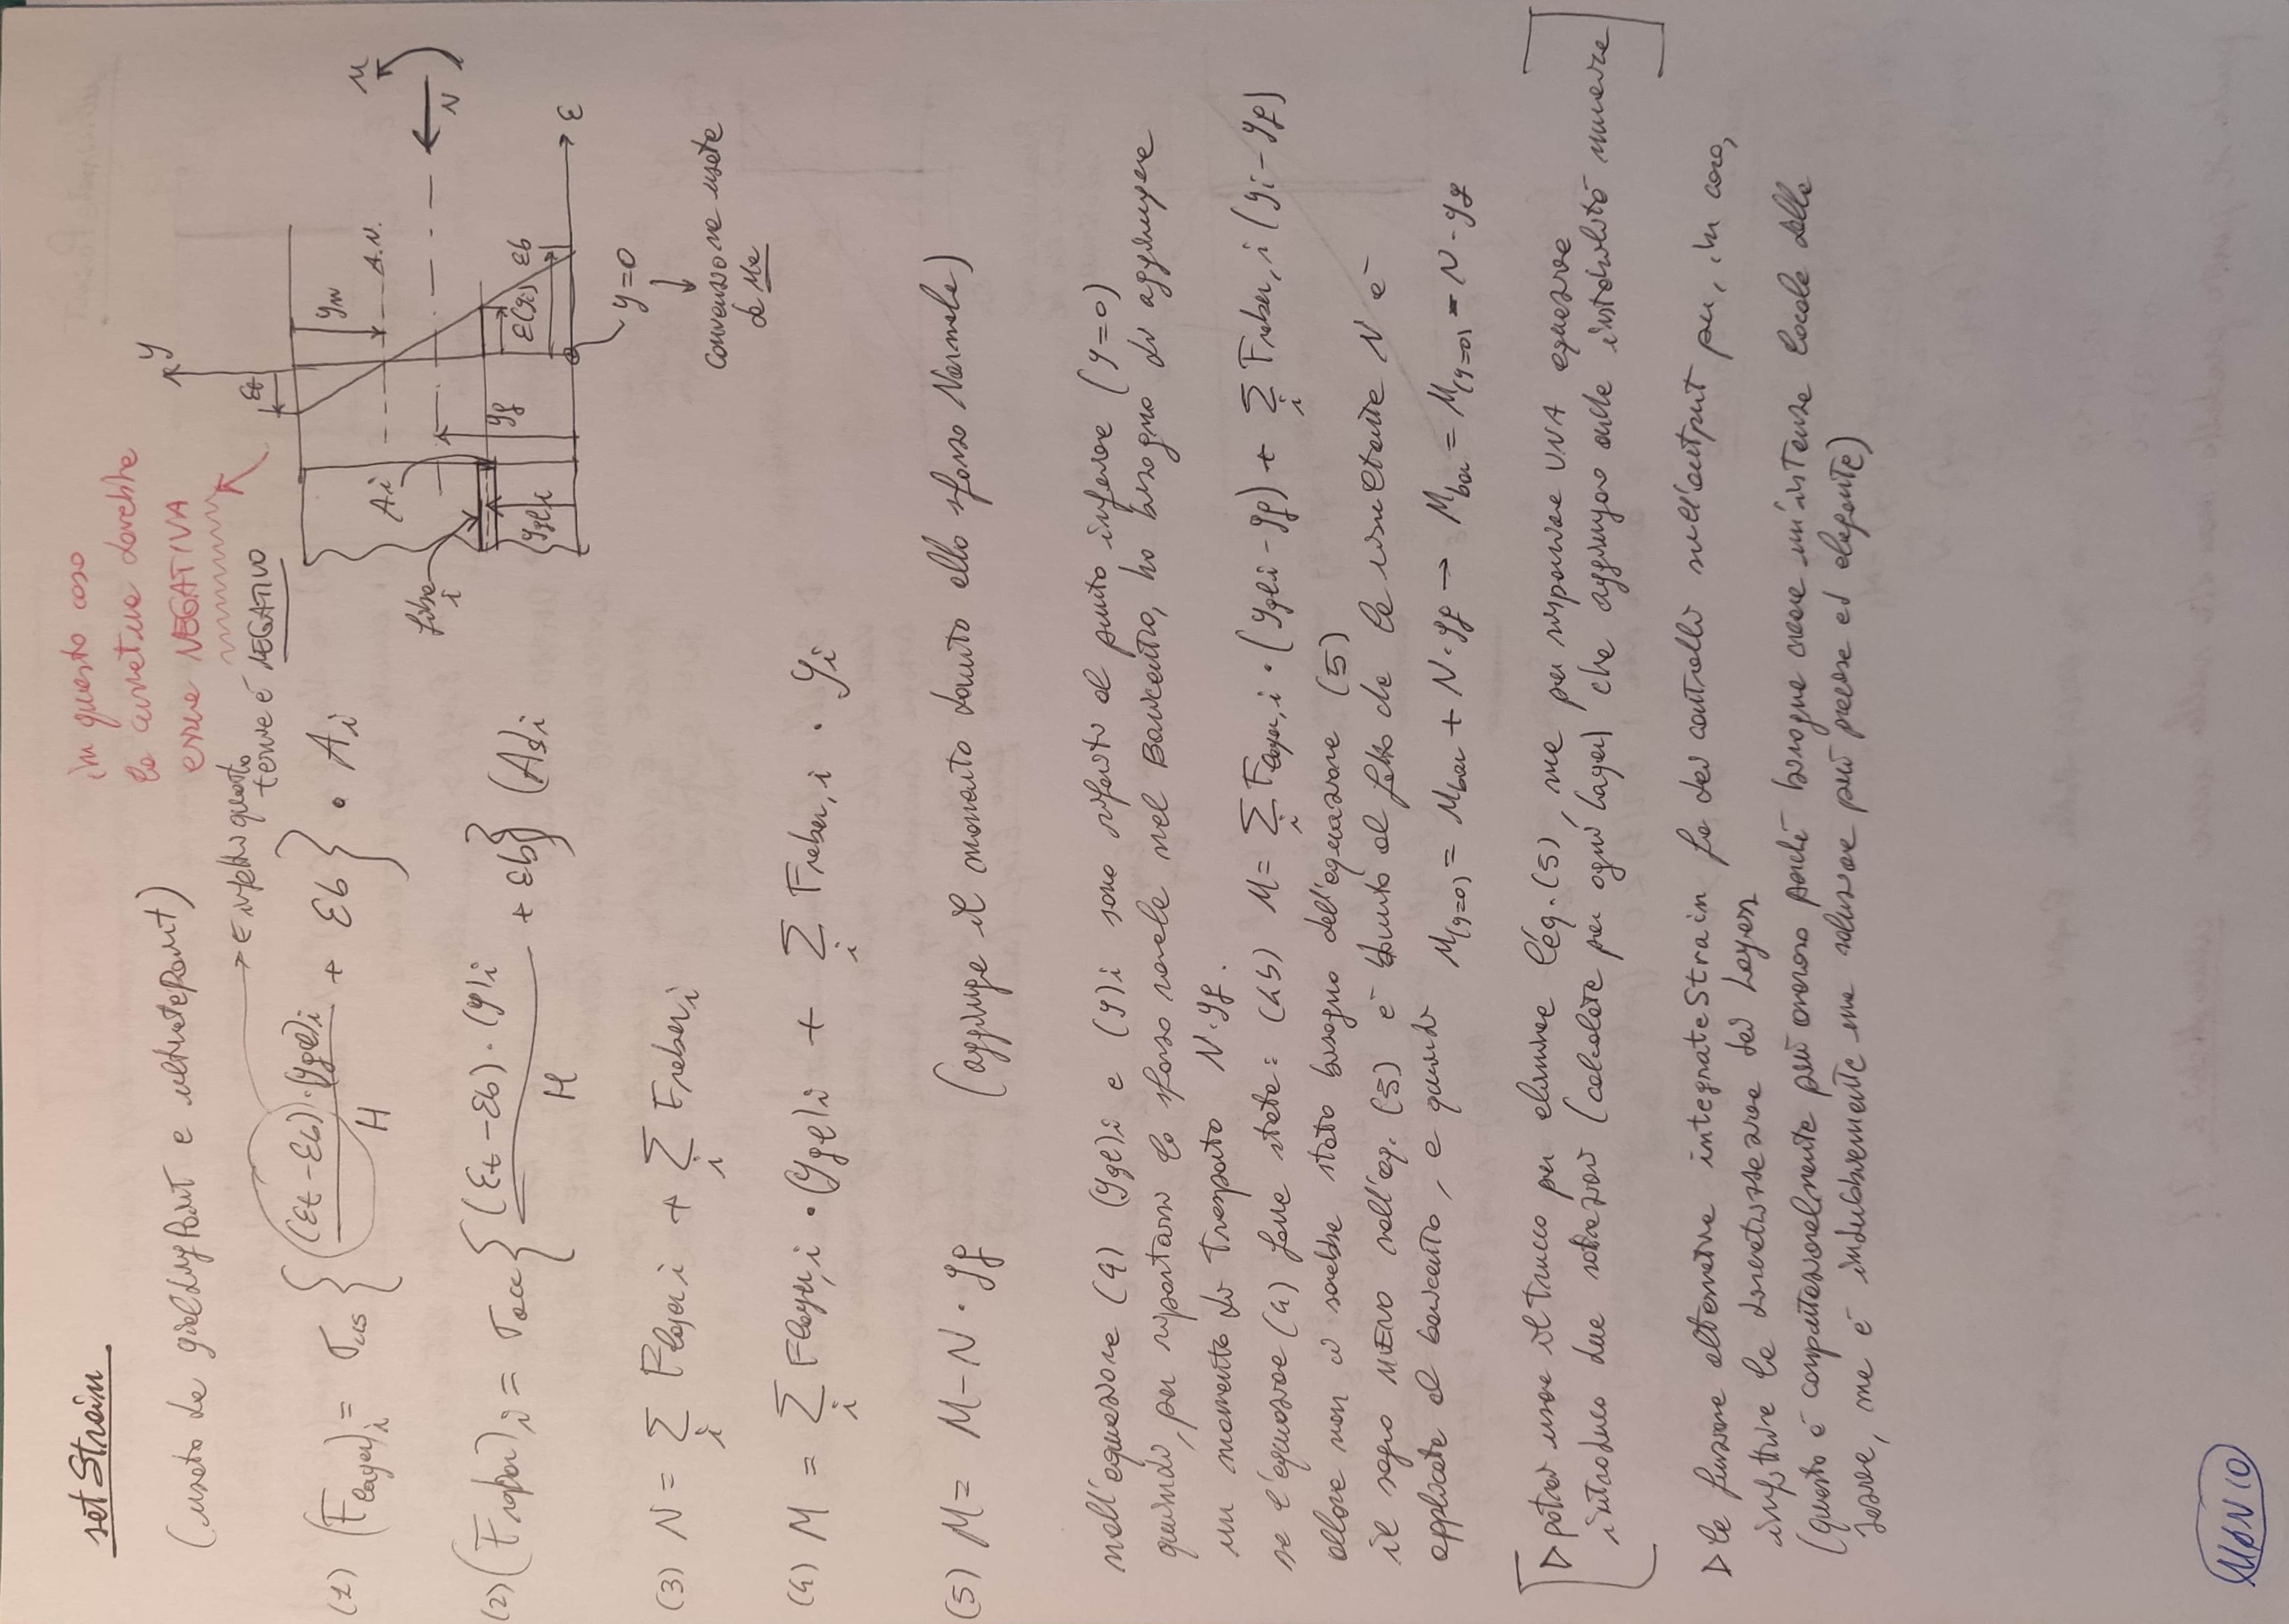 setStrain
(usato da yieldingPoint e ultimatePoint)
in questo caso
la curvatura dovrebbe
essere NEGATIVA
E infatti questo
termine è NEGATIVO
(1) (Flayer)i = σcls { (Et - Eb) · (ygl)i / H + Eb } · Ai
(2) (Frebar)i = σacc { (Et - Eb) · (y)i / H + Eb } (As)i
(3) N = Σi Flayer i + Σi Frebar i
(4) M = Σi Flayer,i · (ygl)i + Σi Frebar,i · yi
(5) M = M - N · yg (aggiunge il momento dovuto allo sforzo Normale)
y
Et
yn
Ai
A.N.
M
fibra
i
N
ygl i
yg
E(yi)
Eb
E
y=0
convenzione usata
da Me
nell'equazione (4) (ygl)i e (y)i sono riferiti al punto inferiore (y=0)
quindi, per riportarsi lo sforzo normale nel Baricentro, ho bisogno di aggiungere
un momento di Trasporto N·yg.
se l'equazione (4) fosse stata: (4b) M = Σi Flayer,i · (ygl i - yg) + Σi Frebar,i (yi - yg)
allora non ci sarebbe stato bisogno dell'equazione (5)
il segno MENO nell'eq. (5) è dovuto al fatto che la risultante N è
applicata al baricentro, e quindi M(y=0) = Mbar + N·yg → Mbar = M(y=0) - N·yg
▷ potrei usare il trucco per eliminare l'eq. (5), ma per risparmiare UNA equazione
introduco due sottrazioni (calcolate per ogni layer) che aggiungono anche instabilità numerica
▷ la funzione alternativa integrateStrain fa dei controlli sull'output per, in caso,
infittire la discretizzazione dei Layers
(questo è computazionalmente più oneroso perché bisogna creare un'istanza locale della
sezione, ma è indubbiamente una soluzione più precisa ed elegante)